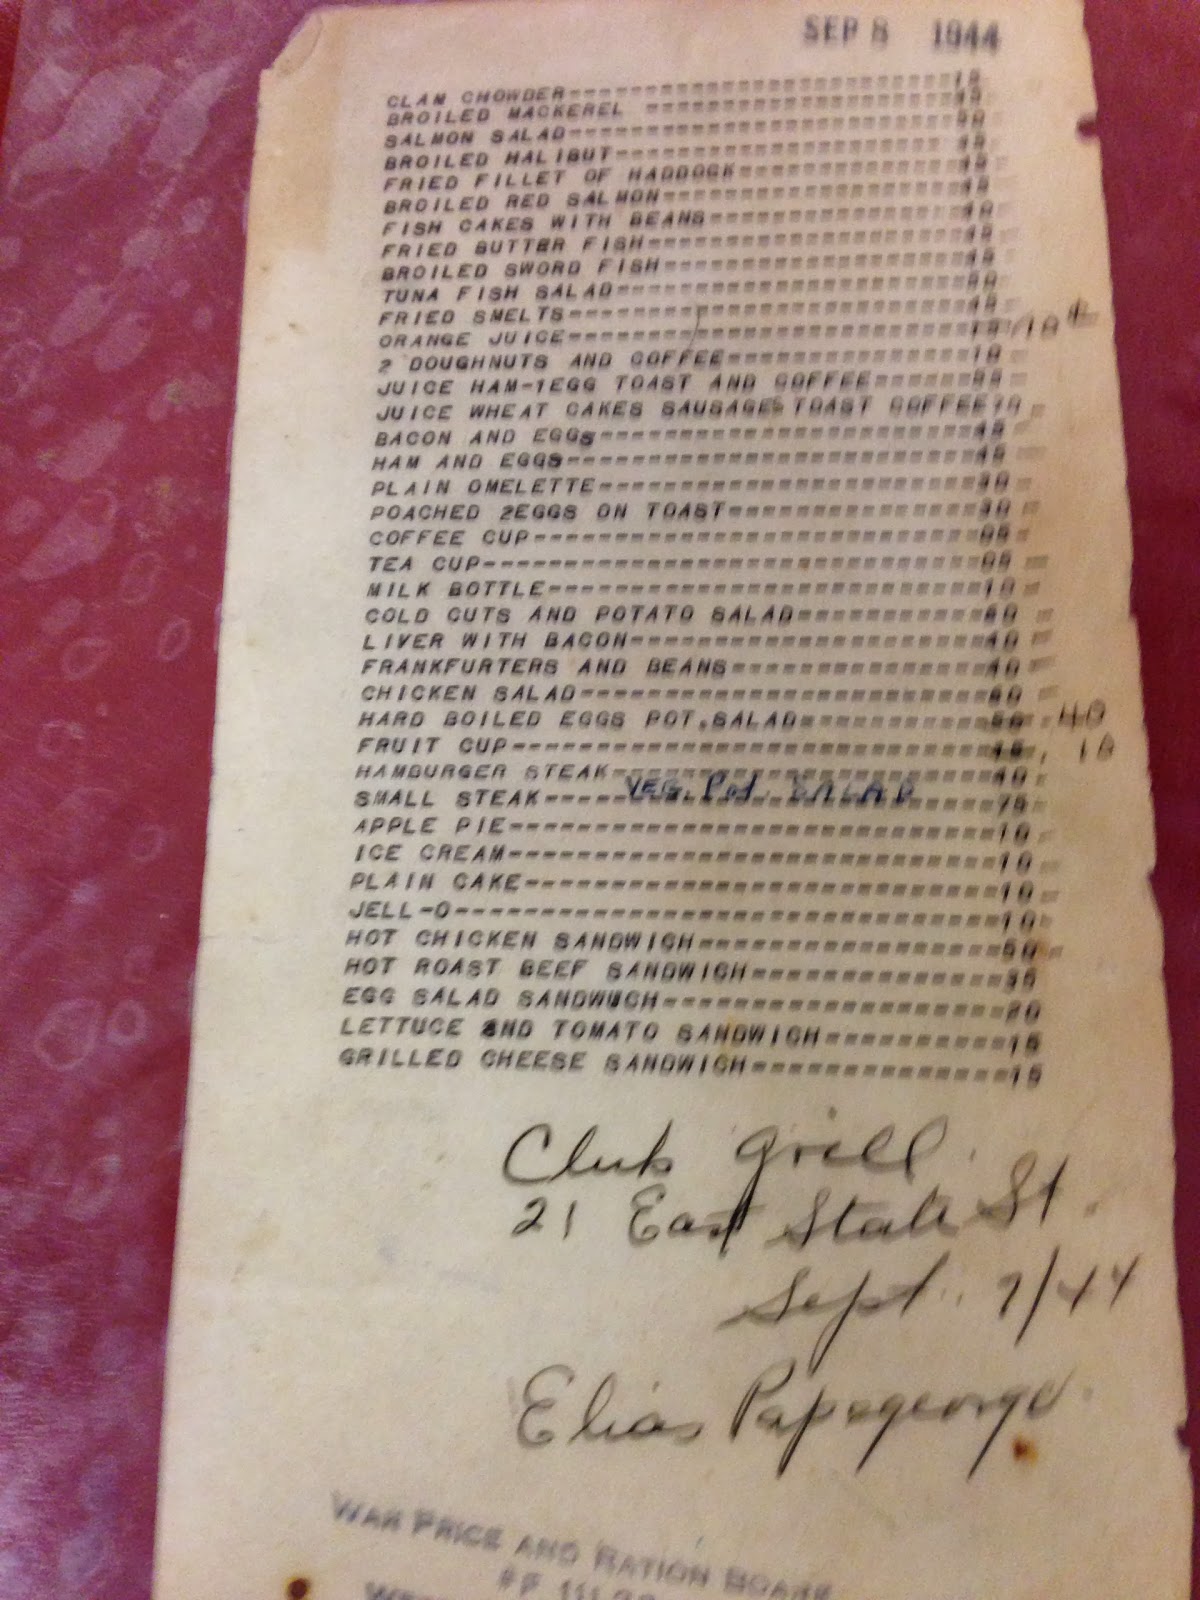 SEP 8 1944
CLAM CHOWDER--------------------------15
BROILED MACKEREL
SALMON SALAD
BROILED HALIBUT
FRIED FILLET OF HADDOCK
BROILED RED SALMON
FISH CAKES WITH BEANS
FRIED BUTTER FISH
BROILED SWORD FISH
TUNA FISH SALAD
FRIED SMELTS
ORANGE JUICE 10¢
2 DOUGHNUTS AND COFFEE--------------------10
JUICE HAM-1EGG TOAST AND COFFEE
JUICE WHEAT CAKES SAUSAGES TOAST COFFEE
BACON AND EGGS--------------------45
HAM AND EGGS--------------------45
PLAIN OMELETTE--------------------30
POACHED 2EGGS ON TOAST--------------------30
COFFEE CUP--------------------05
TEA CUP--------------------05
MILK BOTTLE--------------------10
COLD CUTS AND POTATO SALAD--------------------60
LIVER WITH BACON--------------------40
FRANKFURTERS AND BEANS--------------------40
CHICKEN SALAD--------------------60
HARD BOILED EGGS POT.SALAD--------------------50 .40
FRUIT CUP--------------------15 . 10
HAMBURGER STEAK--------------------40
VEG. Pot. SALAD
SMALL STEAK--------------------75
APPLE PIE--------------------10
ICE CREAM--------------------10
PLAIN CAKE--------------------10
JELL-O--------------------10
HOT CHICKEN SANDWICH--------------------50
HOT ROAST BEEF SANDWICH--------------------35
EGG SALAD SANDWUCH--------------------20
LETTUCE AND TOMATO SANDWICH--------------------15
GRILLED CHEESE SANDWICH--------------------15
Club Grill
21 East State St.
Sept. 7/44
Elias Papageorge
WAR PRICE AND RATION BOARD